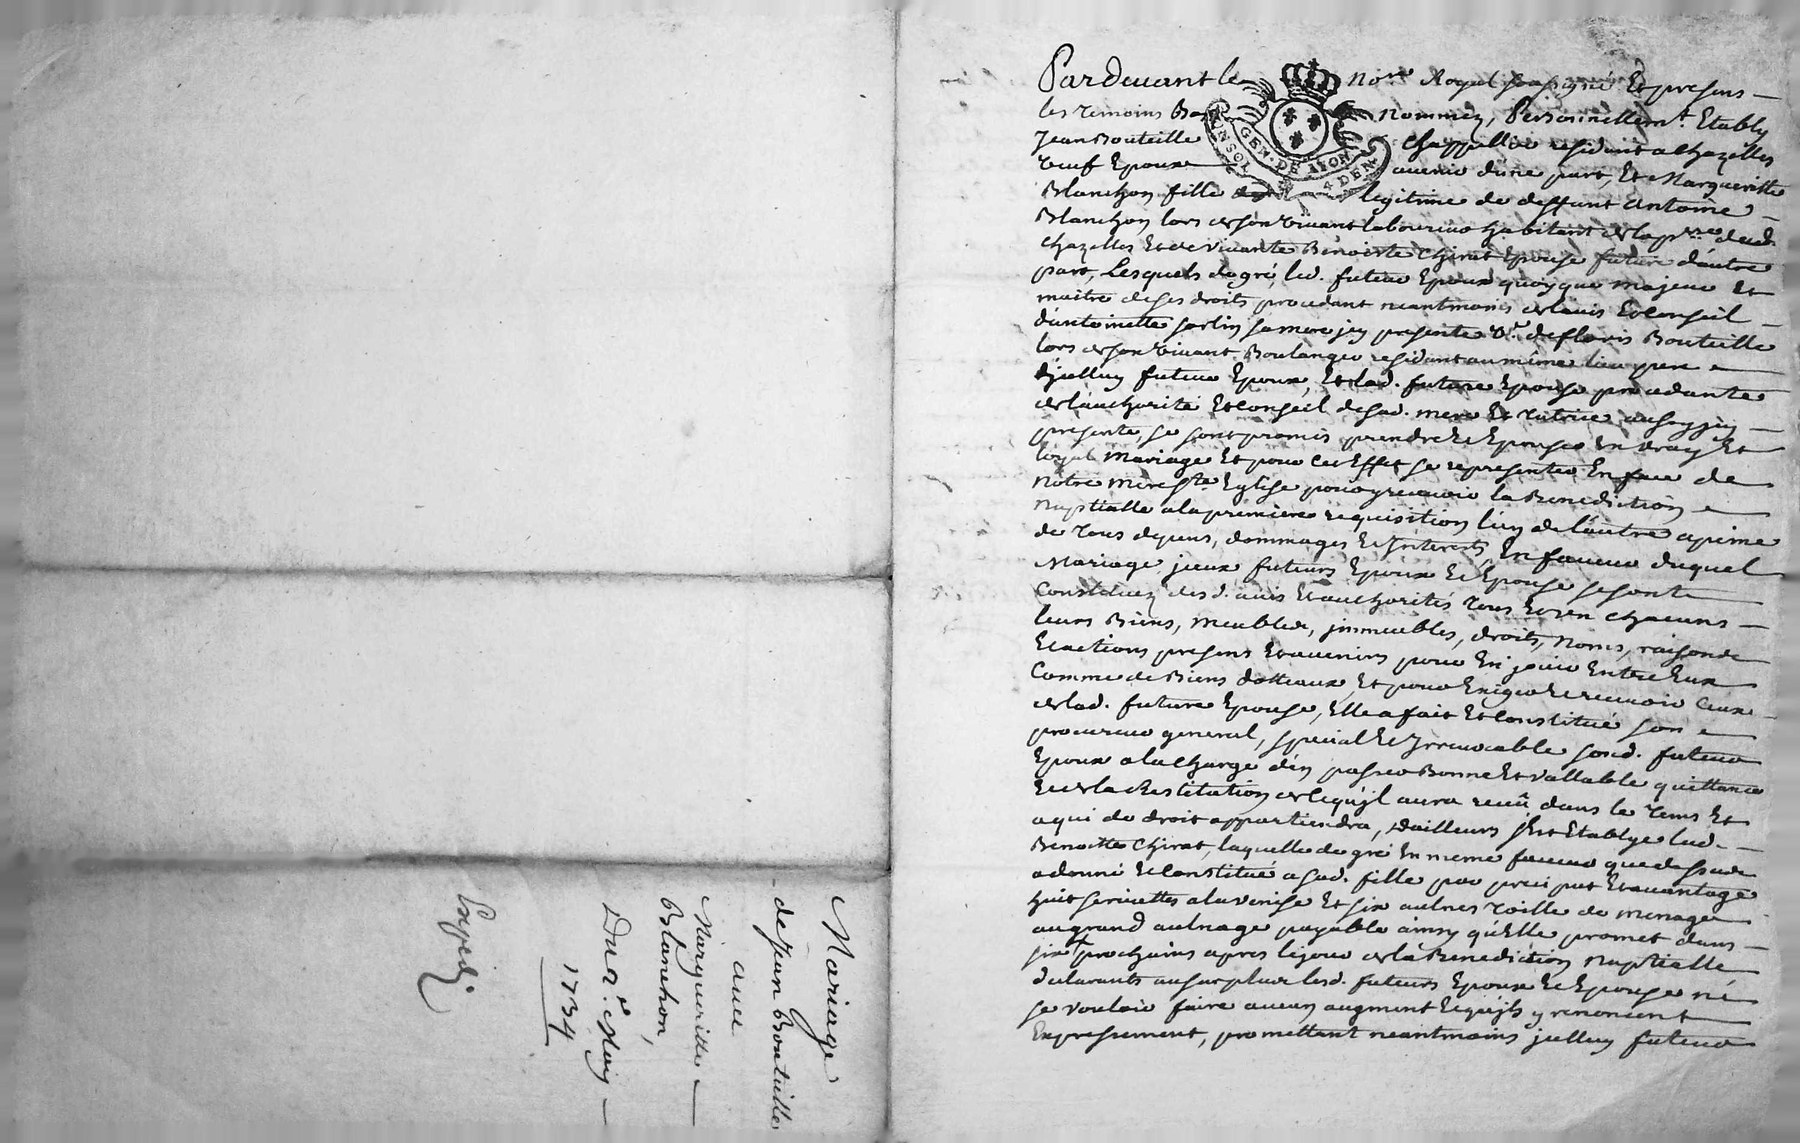 Mariage
de Jean Bouteille
avec
Margueritte
Blanchon,
Du 2.e May
1734
Expedié
GEN. DE LYON
Pardevant le No.re Royal soussigné Et presens
les temoins Bas Nommez, Personnellem.t Etably
Jean Bouteille Chappellier residant a Chazelles
veuf Epoux avenir d'une part, Et Margueritte
Blanchon fille legitime de deffunt Antoine
Blanchon lors de son vivant laboureur habitant de la p.sse dud.
Chazelles Et de vivante Benoiste Chirat Epouse future d'autre
part, Lesquels de gré, led. futur Epoux quoyque majeur Et
maitre de ses droits procedant neantmoins de l'avis Et Conseil
d'antoinette sa mere icy presente v.e de floris Bouteille
lors de son vivant Boulanger residant au même lieu pere
d'jcelluy futur Epoux, Et lad. future Epouse procedante
de l'authorité Et Conseil de sad. mere Et tutrice aussy jcy
presente, se sont promis prendre Et Epouser En vray Et
loyal Mariage Et pour cet Effet se representer En face de
Notre mere s.te Eglise pour y recevoir la Benediction
Nuptialle a la premiere requisition l'un de l'autre a peine
de tous depens, dommages Et Interests, En faveur duquel
Mariage jceux futurs Epoux Et Epouse se sont
Constituez desd. avis Et authorités tous Et un chacuns
leurs Biens, meubles, jmmeubles, droits, Noms, raisons
Et actions presens Et avenirs pour En jouir Entre Eux
Comme de Biens dotteaux, Et pour Exiger Et recevoir Ceux
de lad. future Epouse, Elle a fait Et Constitué son
procureur general, special Et Irrevocable sond. futur
Epoux a la charge d'en passer Bonne Et vallable quittance
Et de la Restitution de ce qu'jl aura receû dans le tems Et
a qui de droit appartiendra, d'ailleurs s'Est Etablye lad.
Benoitte Chirat, laquelle de gré En meme faveur que dessus
a donné Et Constitué a sad. fille par preciput Et avantage
huit serviettes a la venise Et six aulnes toille de menage
au grand aulnage payable ainsy qu'Elle promet dans
six prochains apres le jour de la Benediction Nuptialle
declarants au surplus lesd. futurs Epoux Et Epouse né
se vouloir faire aucun augment Et qu'jls y renoncent
Expressement, promettant neantmoins jcelluy futur